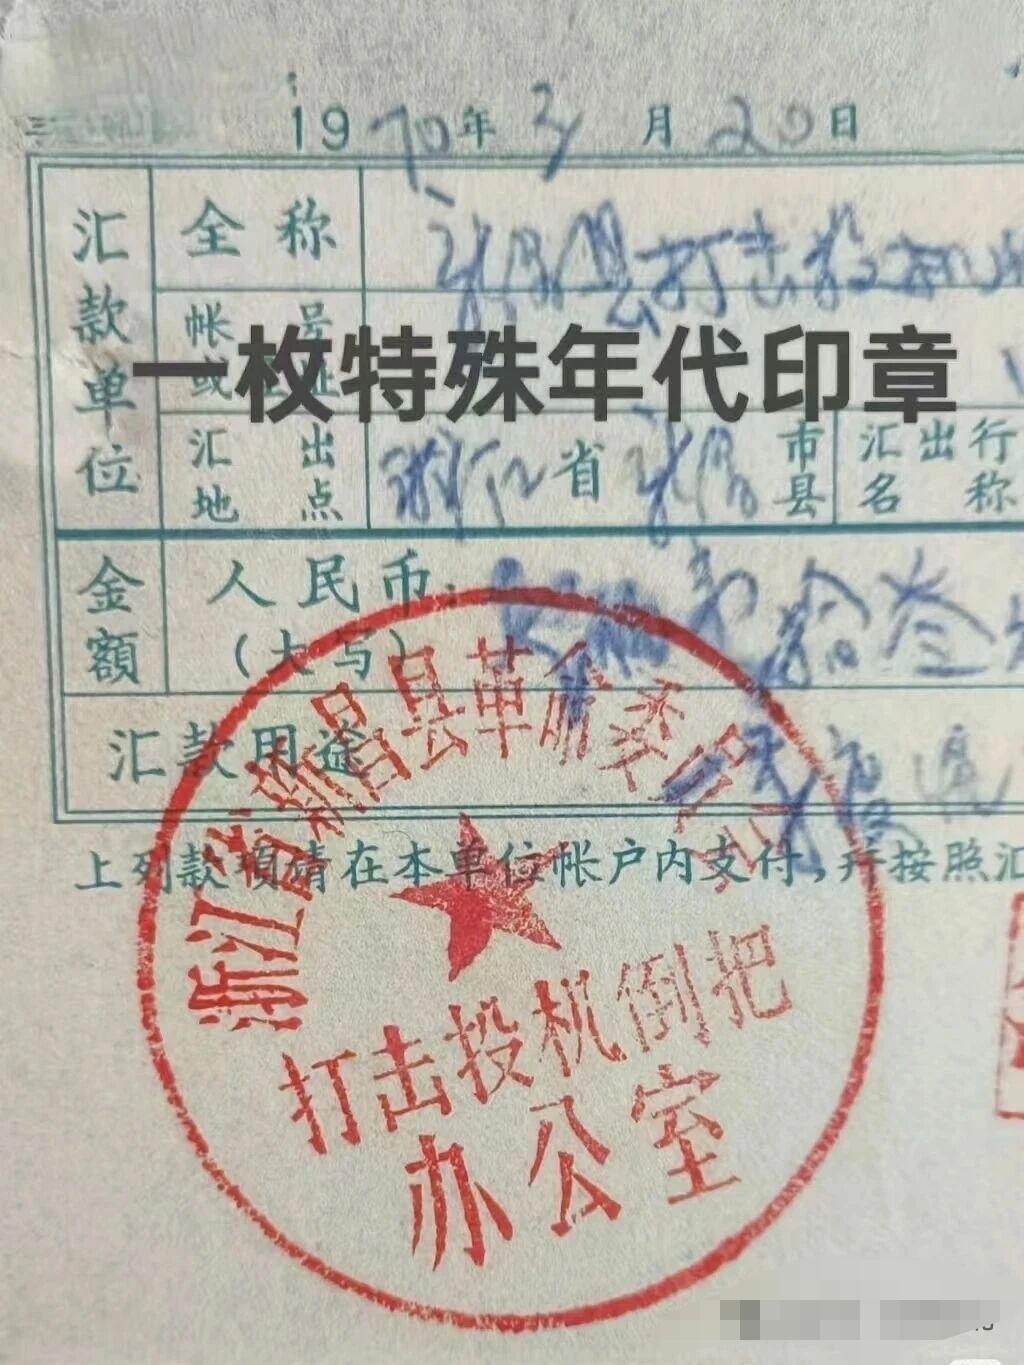 1970年3月20日
汇款单位
全称
新昌县打击投机
帐号
一枚特殊年代印章
汇出地点
浙江省新昌市县
汇出行名称
金额
人民币:
(大写)
拾叁
汇款用途
上列款项请在本单位帐户内支付,并按照汇
浙江省新昌县革命委员会
打击投机倒把
办公室